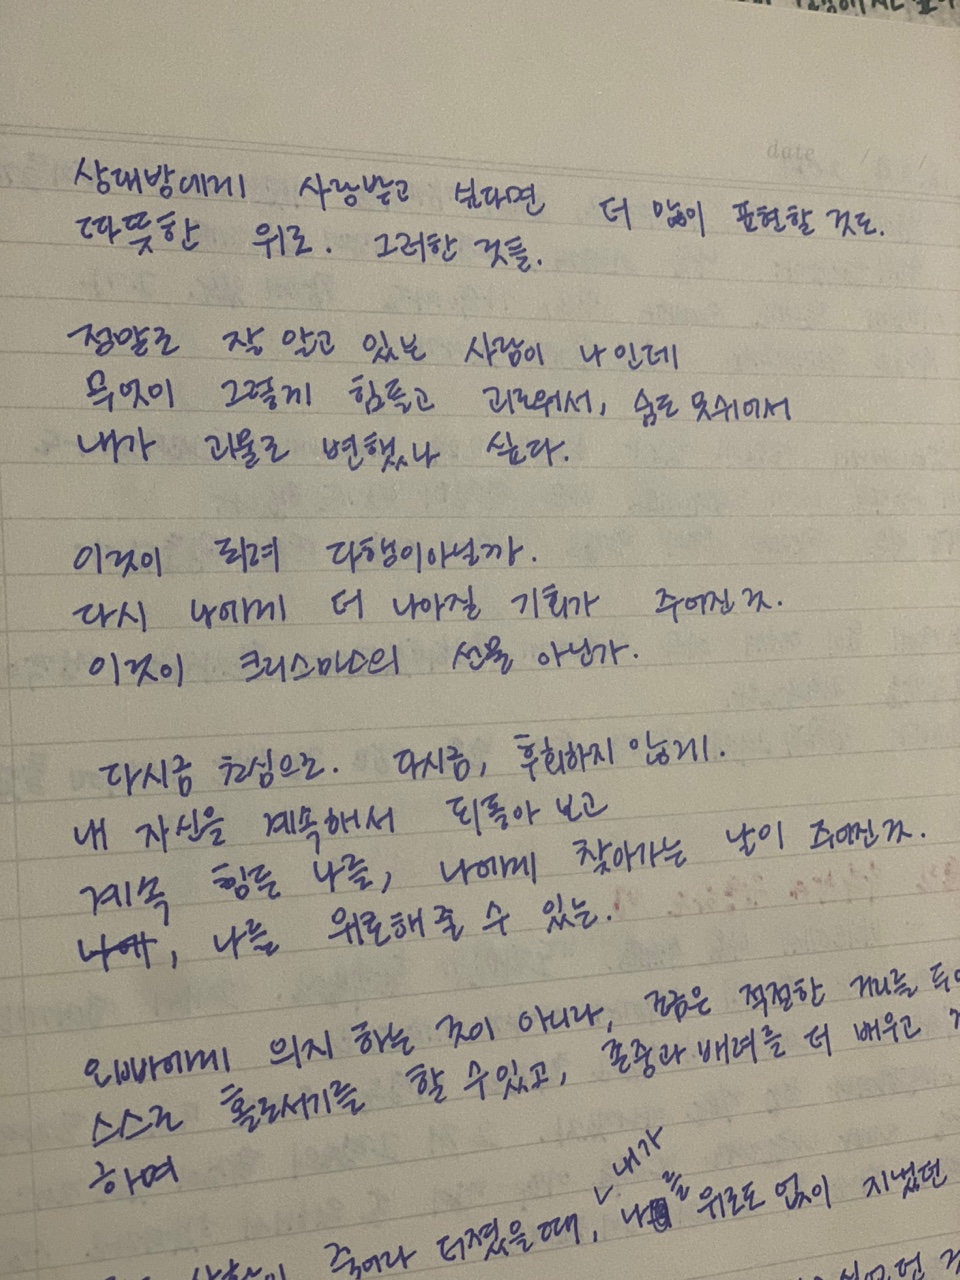 date / /
상대방에게 사랑받고 싶다면 더 많이 표현할 것도.
따뜻한 위로. 그러한 것들.
정말로 잘 알고 있는 사람이 나인데
무엇이 그렇게 힘들고 괴로워서, 숨도 못쉬어서
내가 괴물로 변했나 싶다.
이것이 되려 다행이아닐까.
다시 나에게 더 나아질 기회가 주어진 것.
이것이 크리스마스의 선물 아닌가.
다시금 초심으로. 다시금, 후회하지 않게.
내 자신을 계속해서 되돌아 보고
계속 힘든 나를, 나에게 찾아가는 날이 주어진 것.
나에, 나를 위로해 줄 수 있는.
오빠에게 의지 하는 것이 아니라, 조금은 적절한 거리를
스스로 홀로서기를 할 수 있고, 존중과 배려를 더 배우고
하며
내가
죽어라 터졌을때, 나를 위로도 없이 지냈던